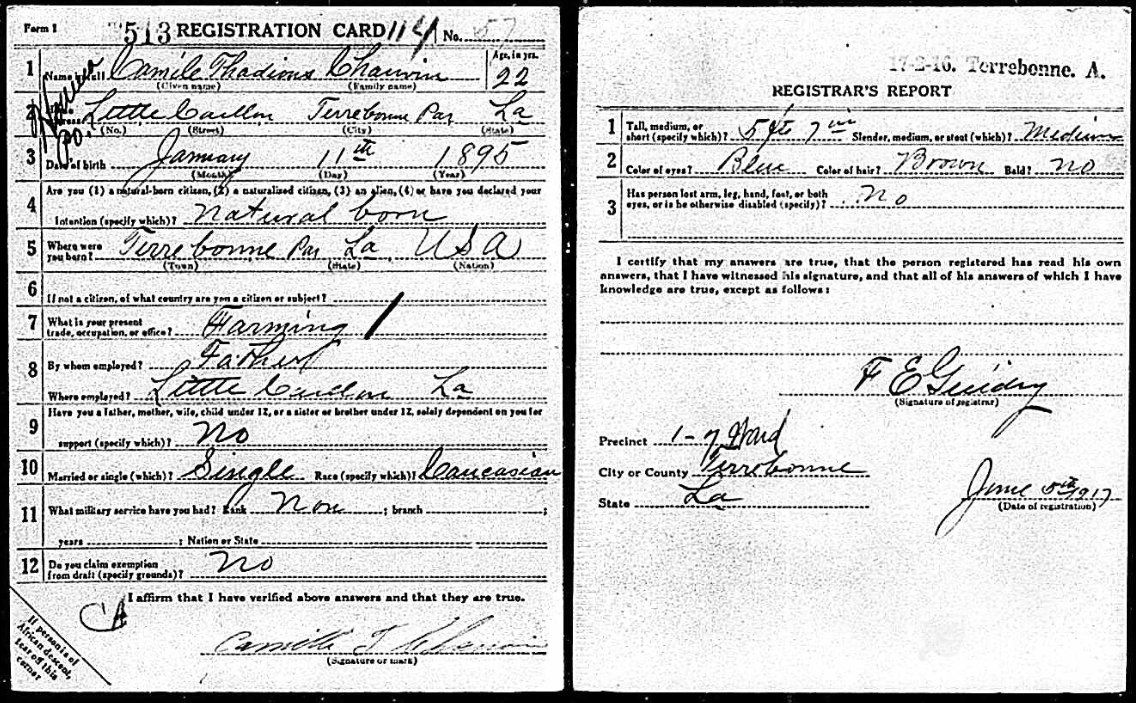 Form 1 513 REGISTRATION CARD 114 No. 57
1 Name in full Camile Thadious Chauvin Age, in yrs. 22
(Given name) (Family name)
Houma
PO.
2 Little Caillou Terrebonne Par La
(No.) (Street) (City) (State)
3 Date of birth January 11th 1895
(Month) (Day) (Year)
4 Are you (1) a natural-born citizen, (2) a naturalized citizen, (3) an alien, (4) or have you declared your
intention (specify which)? Natural born
5 Where were you born? Terrebonne Par La USA
(Town) (State) (Nation)
6 If not a citizen, of what country are you a citizen or subject?
7 What is your present trade, occupation, or office? Farming /
8 By whom employed? Father
Where employed? Little Caillou La
9 Have you a father, mother, wife, child under 12, or a sister or brother under 12, solely dependent on you for
support (specify which)? No
10 Married or single (which)? Single Race (specify which)? Caucasian
11 What military service have you had? Rank Non ; branch ;
years ; Nation or State
12 Do you claim exemption from draft (specify grounds)? No
I affirm that I have verified above answers and that they are true.
Camille T Chauvin
(Signature or mark)
If person is of
African descent,
tear off this
corner
17-2-16. Terrebonne. A.
REGISTRAR'S REPORT
1 Tall, medium, or short (specify which)? 5 ft 7 in Slender, medium, or stout (which)? Medium
2 Color of eyes? Blue Color of hair? Brown Bald? No
3 Has person lost arm, leg, hand, foot, or both
eyes, or is he otherwise disabled (specify)? No
I certify that my answers are true, that the person registered has read his own
answers, that I have witnessed his signature, and that all of his answers of which I have
knowledge are true, except as follows:
F E Guidry
(Signature of registrar)
Precinct 1-7 Ward
City or County Terrebonne
State La
June 5th 1917
(Date of registration)